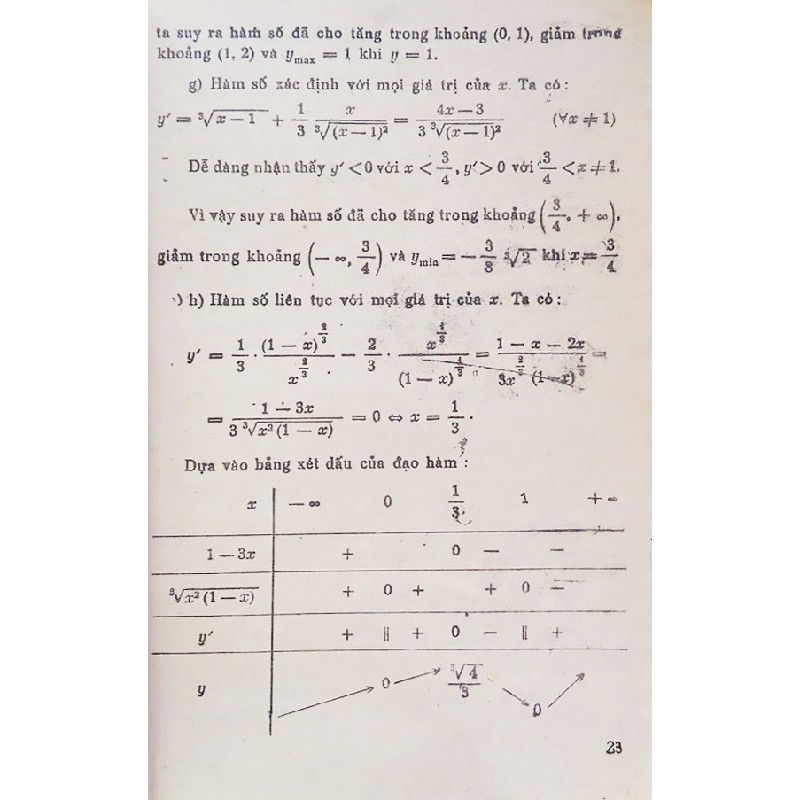 ta suy ra hàm số đã cho tăng trong khoảng (0, 1), giảm trong
khoảng (1, 2) và y_max = 1 khi y = 1.
g) Hàm số xác định với mọi giá trị của x. Ta có:
y′ = ∛(x − 1) + 1/3 · x/∛((x − 1)²) = (4x − 3)/(3 ∛((x − 1)²)) (∀x ≠ 1)
Dễ dàng nhận thấy y′ < 0 với x < 3/4, y′ > 0 với 3/4 < x ≠ 1.
Vì vậy suy ra hàm số đã cho tăng trong khoảng (3/4, + ∞),
giảm trong khoảng (− ∞, 3/4) và y_min = − 3/8 ∛2 khi x = 3/4
h) Hàm số liên tục với mọi giá trị của x. Ta có:
y′ = 1/3 · (1 − x)^(2/3) / x^(2/3) − 2/3 · x^(1/3) / (1 − x)^(1/3) = (1 − x − 2x) / (3x^(2/3) (1 − x)^(1/3)) =
= (1 − 3x)/(3 ∛(x² (1 − x))) = 0 ⇔ x = 1/3 .
Dựa vào bảng xét dấu của đạo hàm :
x − ∞ 0 1/3 1 + ∞
1 − 3x + 0 − −
∛(x² (1 − x)) + 0 + + 0 −
y′ + || + 0 − || +
y 0 ∛4/3 0
23